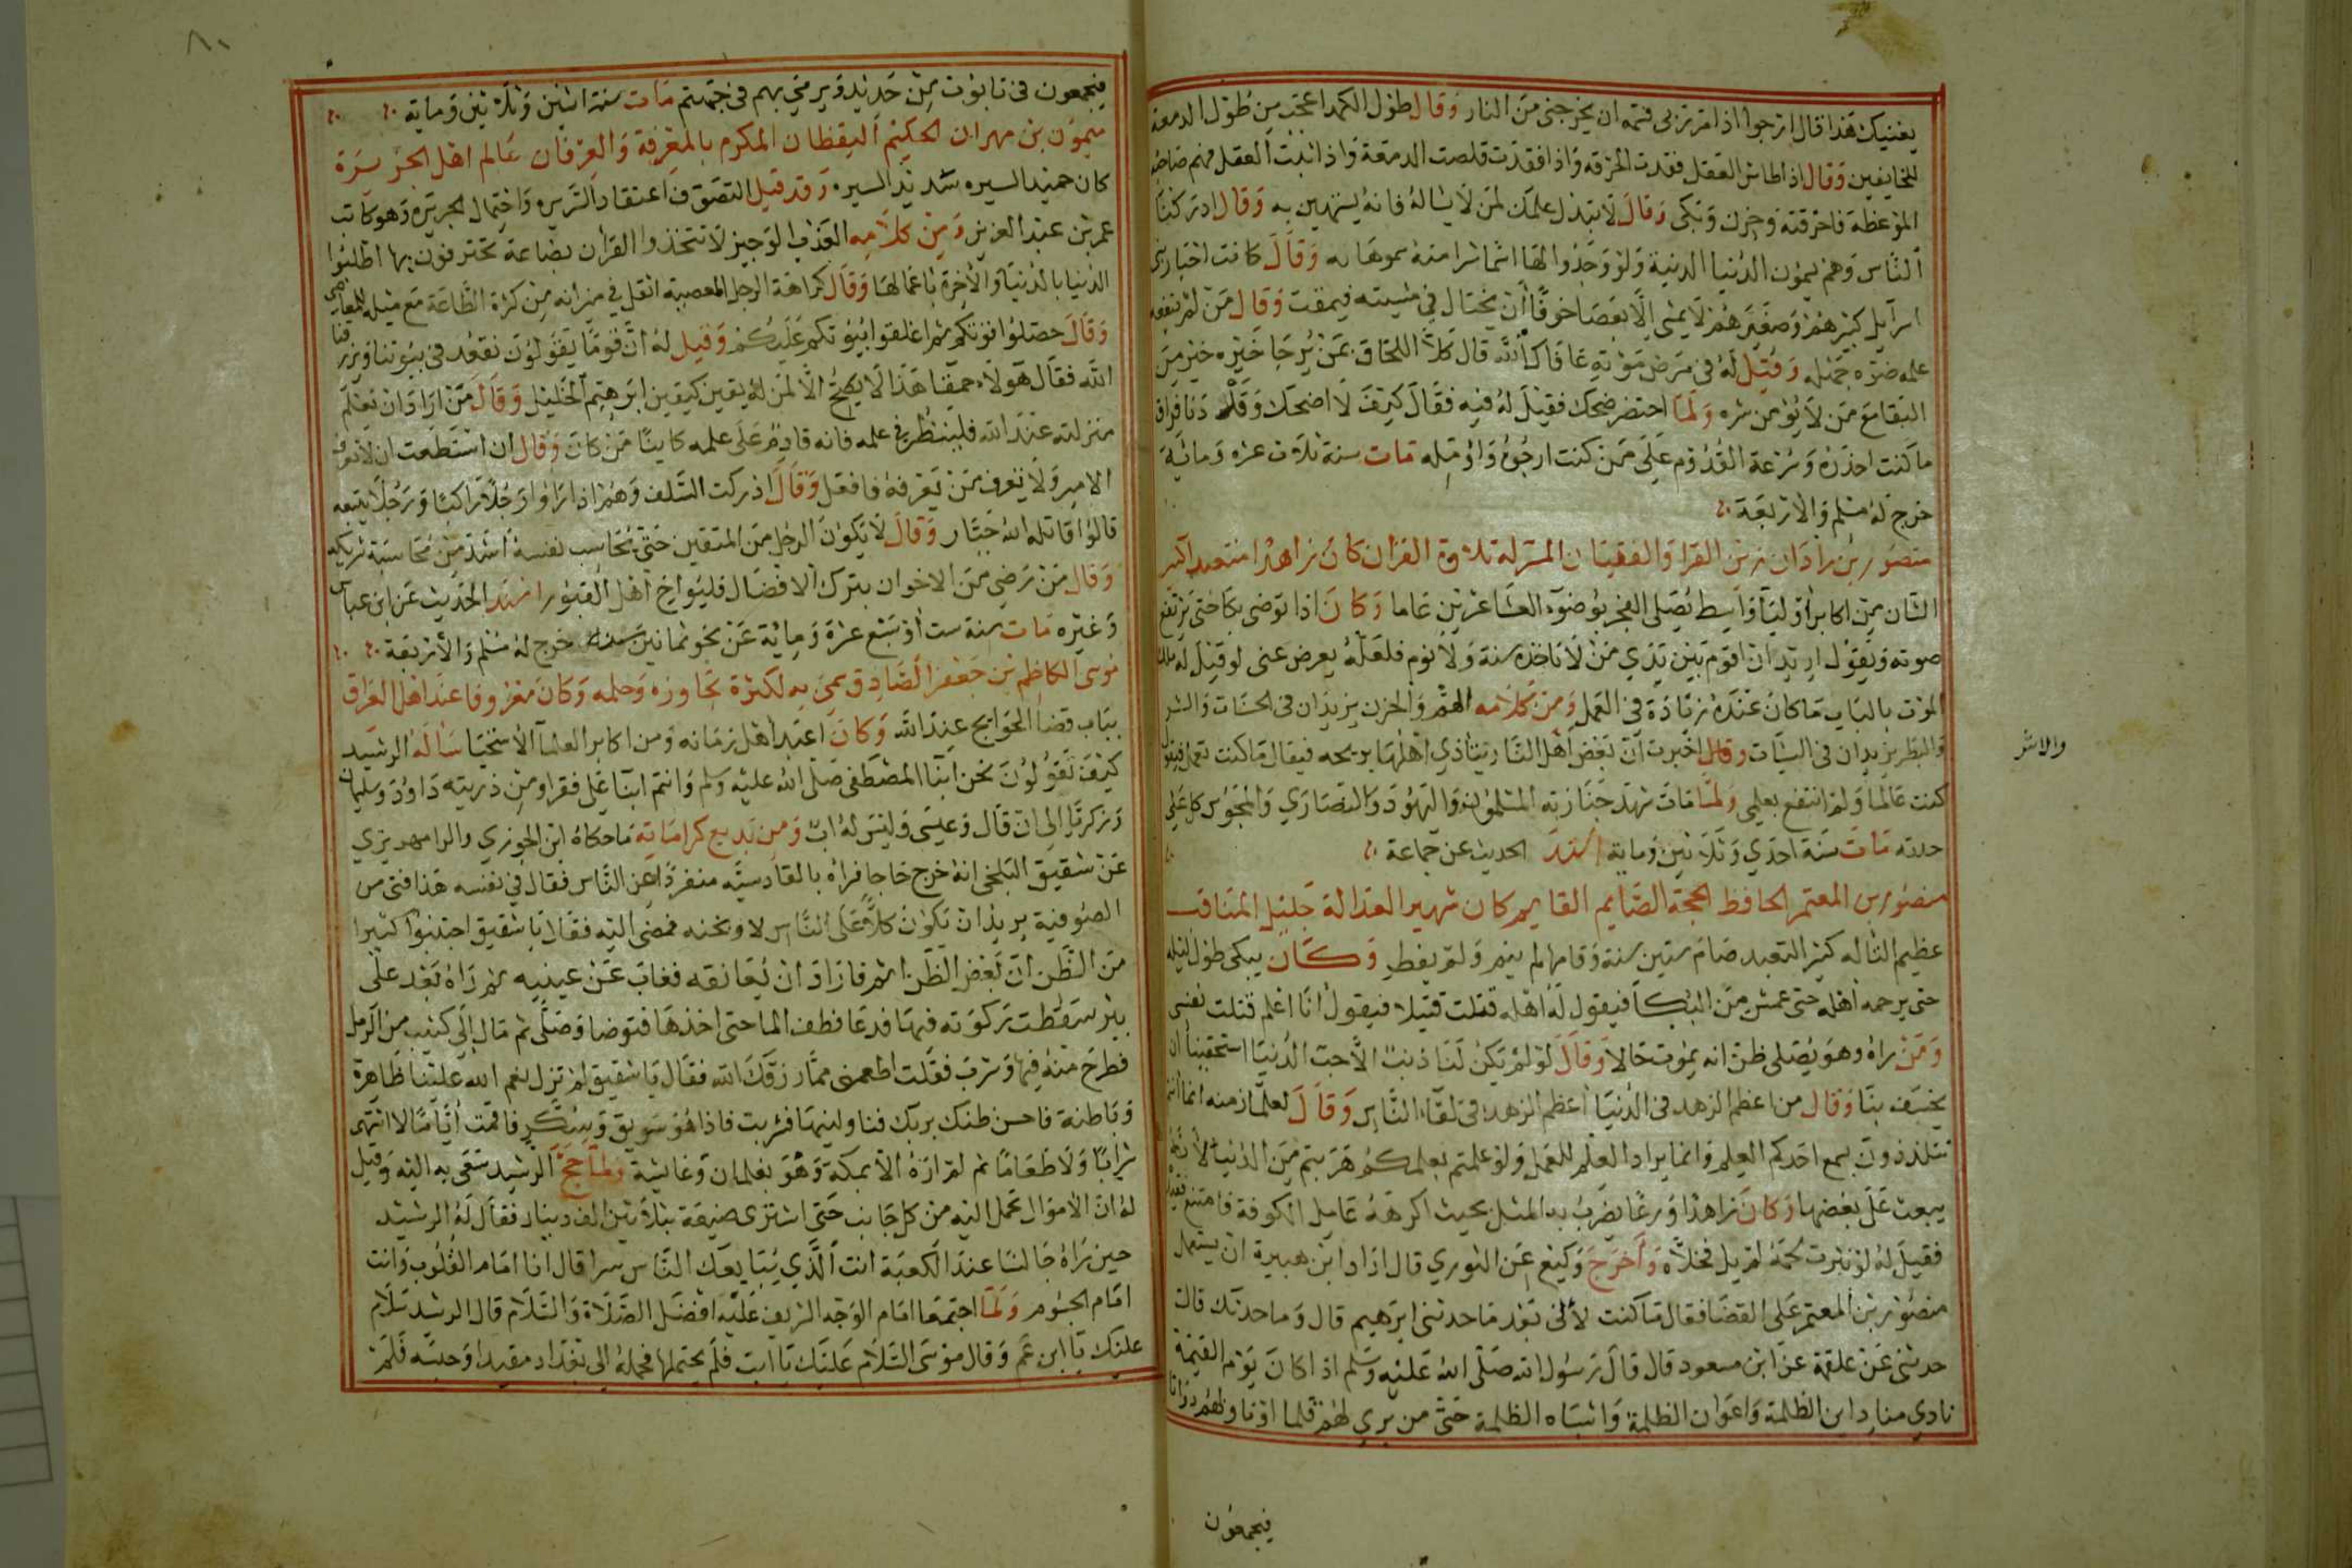 يغنيك هذا قال ارجوا اذا مر بي فتمه ان يخرجني من النار وقال طول الكمد اعجب من طول الدمعة
للخايفين وقال اذا طاش العقل فقدت الحرقه واذا فقدت قلصت الدمعة واذا ثبت العقل فهم صاحبه
الموعظة فاحرقته وحزن وبكى وقال لا تبذل علمك لمن لا يساله فانه يستهين به وقال ادركنا
الناس وهم يسمون الدنيا الدنية ولو وجدوا لها اسما شرا منه سموها به وقال كانت احبار بني
اسرايل كبيرهم وصغيرهم لا يمشي الا بعصا خوفا ان يختال في مشيته فيمقت وقال من لم ينفعه
علمه ضره جهله وقيل له في مرض موته عافاك الله قال كلا اللحاق بمن يرجا خيره خير من
البقا مع من لا يؤمن شره ولما احتضر ضحك فقيل له فيه فقال كيف لا اضحك وقد دنا فراق
ما كنت احذره وسرعة القدوم على من كنت ارجوه واؤمله مات سنة ثلاث عشره وماية
خرج له مسلم والاربعة
منصور بن زادان زين القرا والفقيان الميسر له تلاوة القران كان زاهدا متعبدا كبير
الشان من اكابر اوليآ واسط يصلي الفجر بوضوء العشا عشرين عاما وكان اذا توضى بكا حتى يرتفع
صوته ويقول اريد ان اقوم بين يدي من لا تاخذه سنة ولا نوم فلعله يعرض عني لو قيل له ملك
الموت بالباب ما كان عنده زيادة في العمل ومن كلامه الهم والحزن يزيدان في الحسنات والشر
والبطر يزيدان في السيآت وقال اخبرت ان بعض اهل النار يتاذي اهلها بريحه فيقال ما كنت تعمل فيقول
كنت عالما ولم انتفع بعلمي ولما مات شهد جنازته المسلمون واليهود والنصاري والمجوس كل على
حدته مات سنة احدي وثلاثين وماية اسند الحديث عن جماعة
منصور بن المعتمر الحافظ الحجة الصايم القايم كان شهير العدالة جليل المناقب
عظيم التاله كثير التعبد صام ستين سنة وقامها لم ينم ولم يفطر وكان يبكي طول ليله
حتى يرحمه اهله حتى عمش من البكآ فيقول له اهله قتلت قتيلا فيقول انا اعلم قتلت نفسي
ومن راه وهو يصلي ظن انه يموت حالا وقال لو لم يكن لنا ذنب الا حب الدنيا استحقينا ان
يخسف بنا وقال من اعظم الزهد في الدنيا اعظم الزهد في لقآ الناس وقال لعلمآ زمنه انما انتم
تتلذذون يسمع احدكم العلم وانما يراد العلم للعمل ولو علمتم بعلمكم هربتم من الدنيا لانه
يبعث على بغضها وكان زاهدا ورعا يضرب به المثل بحيث اكرهه عامل الكوفة فامتنع
فقيل له لو نثرت لحمه لم يل فخلاه واخرج وكيع عن الثوري قال اراد ابن هبيرة ان يستعمل
منصور بن المعتمر على القضا فقال ما كنت لألي بعد ما حدثني ابرهيم قال وما حدثك قال
حدثني عن علقمة عن ابن مسعود قال قال رسول الله صلى الله عليه وسلم اذا كان يوم القيمة
نادي مناد اين الظلمة واعوان الظلمة واشباه الظلمة حتى من بري لهم قلما او ناولهم دواة
فيجمعون
والاشر
فيجمعون في تابوت من حديد ويرمي بهم في جهنم مات سنة اثنين وثلاثين وماية
ميمون بن مهران الحكيم اليقظان المكرم بالمعرفة والعرفان عالم اهل الجزيرة
كان حميد السيره شديد السيره وقد قيل التصوف اعتقاد السريره واحتمال الجريره وهو كاتب
عمر بن عبد العزيز ومن كلامه العذب الوجيز لا تتخذوا القران بضاعة تحترفون بها اطلبوا
الدنيا بالدنيا والاخرة باعمالها وقال كراهة الرجل المعصية اثقل في ميزانه من كثرة الطاعة مع ميله للمعاصي
وقال حصلوا قوتكم ثم اغلقوا بيوتكم عليكم وقيل له ان قوما يقولون نقعد في بيوتنا ويرزقنا
الله فقال هولآء حمقا هذا لا يصح الا لمن له يقين كيقين ابرهيم الخليل وقال من اراد ان يعلم
منزلته عند الله فلينظر في علمه فانه قادم على علمه كاينا من كان وقال ان استطعت ان لا تعرف
الامير ولا يعرف من يعرفه فافعل وقال ادركت السلف وهم اذا راوا رجلا راكبا ورجلا يتبعه
قالوا قاتله الله جبار وقال لا يكون الرجل من المتقين حتى يحاسب نفسه اشد من محاسبة شريكه
وقال من رضي من الاخوان بترك الافضال فليواخ اهل القبور اسند الحديث عن ابن عباس
وغيره مات سنة ست او سبع عشرة وماية عن نحو ثمانين سنة خرج له مسلم والاربعة
موسى الكاظم بن جعفر الصادق سمي به لكثرة تجاوزه وحلمه وكان معروفا عند اهل العراق
بباب قضا الحوايج عند الله وكان اعبد اهل زمانه ومن اكابر العلمآ الاسخيا ساله الرشيد
كيف تقولون نحن ابنا المصطفى صلى الله عليه وسلم وانتم ابنآ علي فقرا ومن ذريته داود وسليمان
وزكريآ الى ان قال وعيسى وليس له اب ومن بديع كراماته ما حكاه ابن الجوزي والرامهرمزي
عن شقيق البلخي انه خرج حاجا فراه بالقادسيه منفردا عن الناس فقال في نفسه هذا فتى من
الصوفية يريد ان يكون كلا على الناس لاوبخنه فمضى اليه فقال يا شقيق اجتنبوا كثيرا
من الظن ان بعض الظن اثم فاراد ان يعانقه فغاب عن عينيه ثم راه بعد على
بير سقطت ركوته فيها فدعا فطف الما حتى اخذها فتوضا وصلى ثم مال الى كثيب من الرمل
فطرح منه فيها وشرب فقلت اطعمني مما رزقك الله فقال يا شقيق لم تزل نعم الله علينا ظاهرة
وباطنة فاحسن ظنك بربك فناولنيها فشربت فاذا هو سويق وسكر فاقمت اياما لا اشتهى
شرابا ولا طعاما ثم لم اره الا بمكة وهو بغلمان وغاشية ولما حج الرشيد سعى به اليه وقيل
له ان الاموال تحمل اليه من كل جانب حتى اشترى ضيعة بثلاثين الف دينار فقال له الرشيد
حين راه جالسا عند الكعبة انت الذي يبايعك الناس سرا قال انا امام القلوب وانت
امام الجسوم ولما اجتمعا امام الوجه الشريف عليه افضل الصلاة والسلام قال الرشيد سلام
عليك يا ابن عم وقال موسى السلام عليك يا ابت فلم يحتملها فحمله الى بغداد مقيدا وحبسه فلم